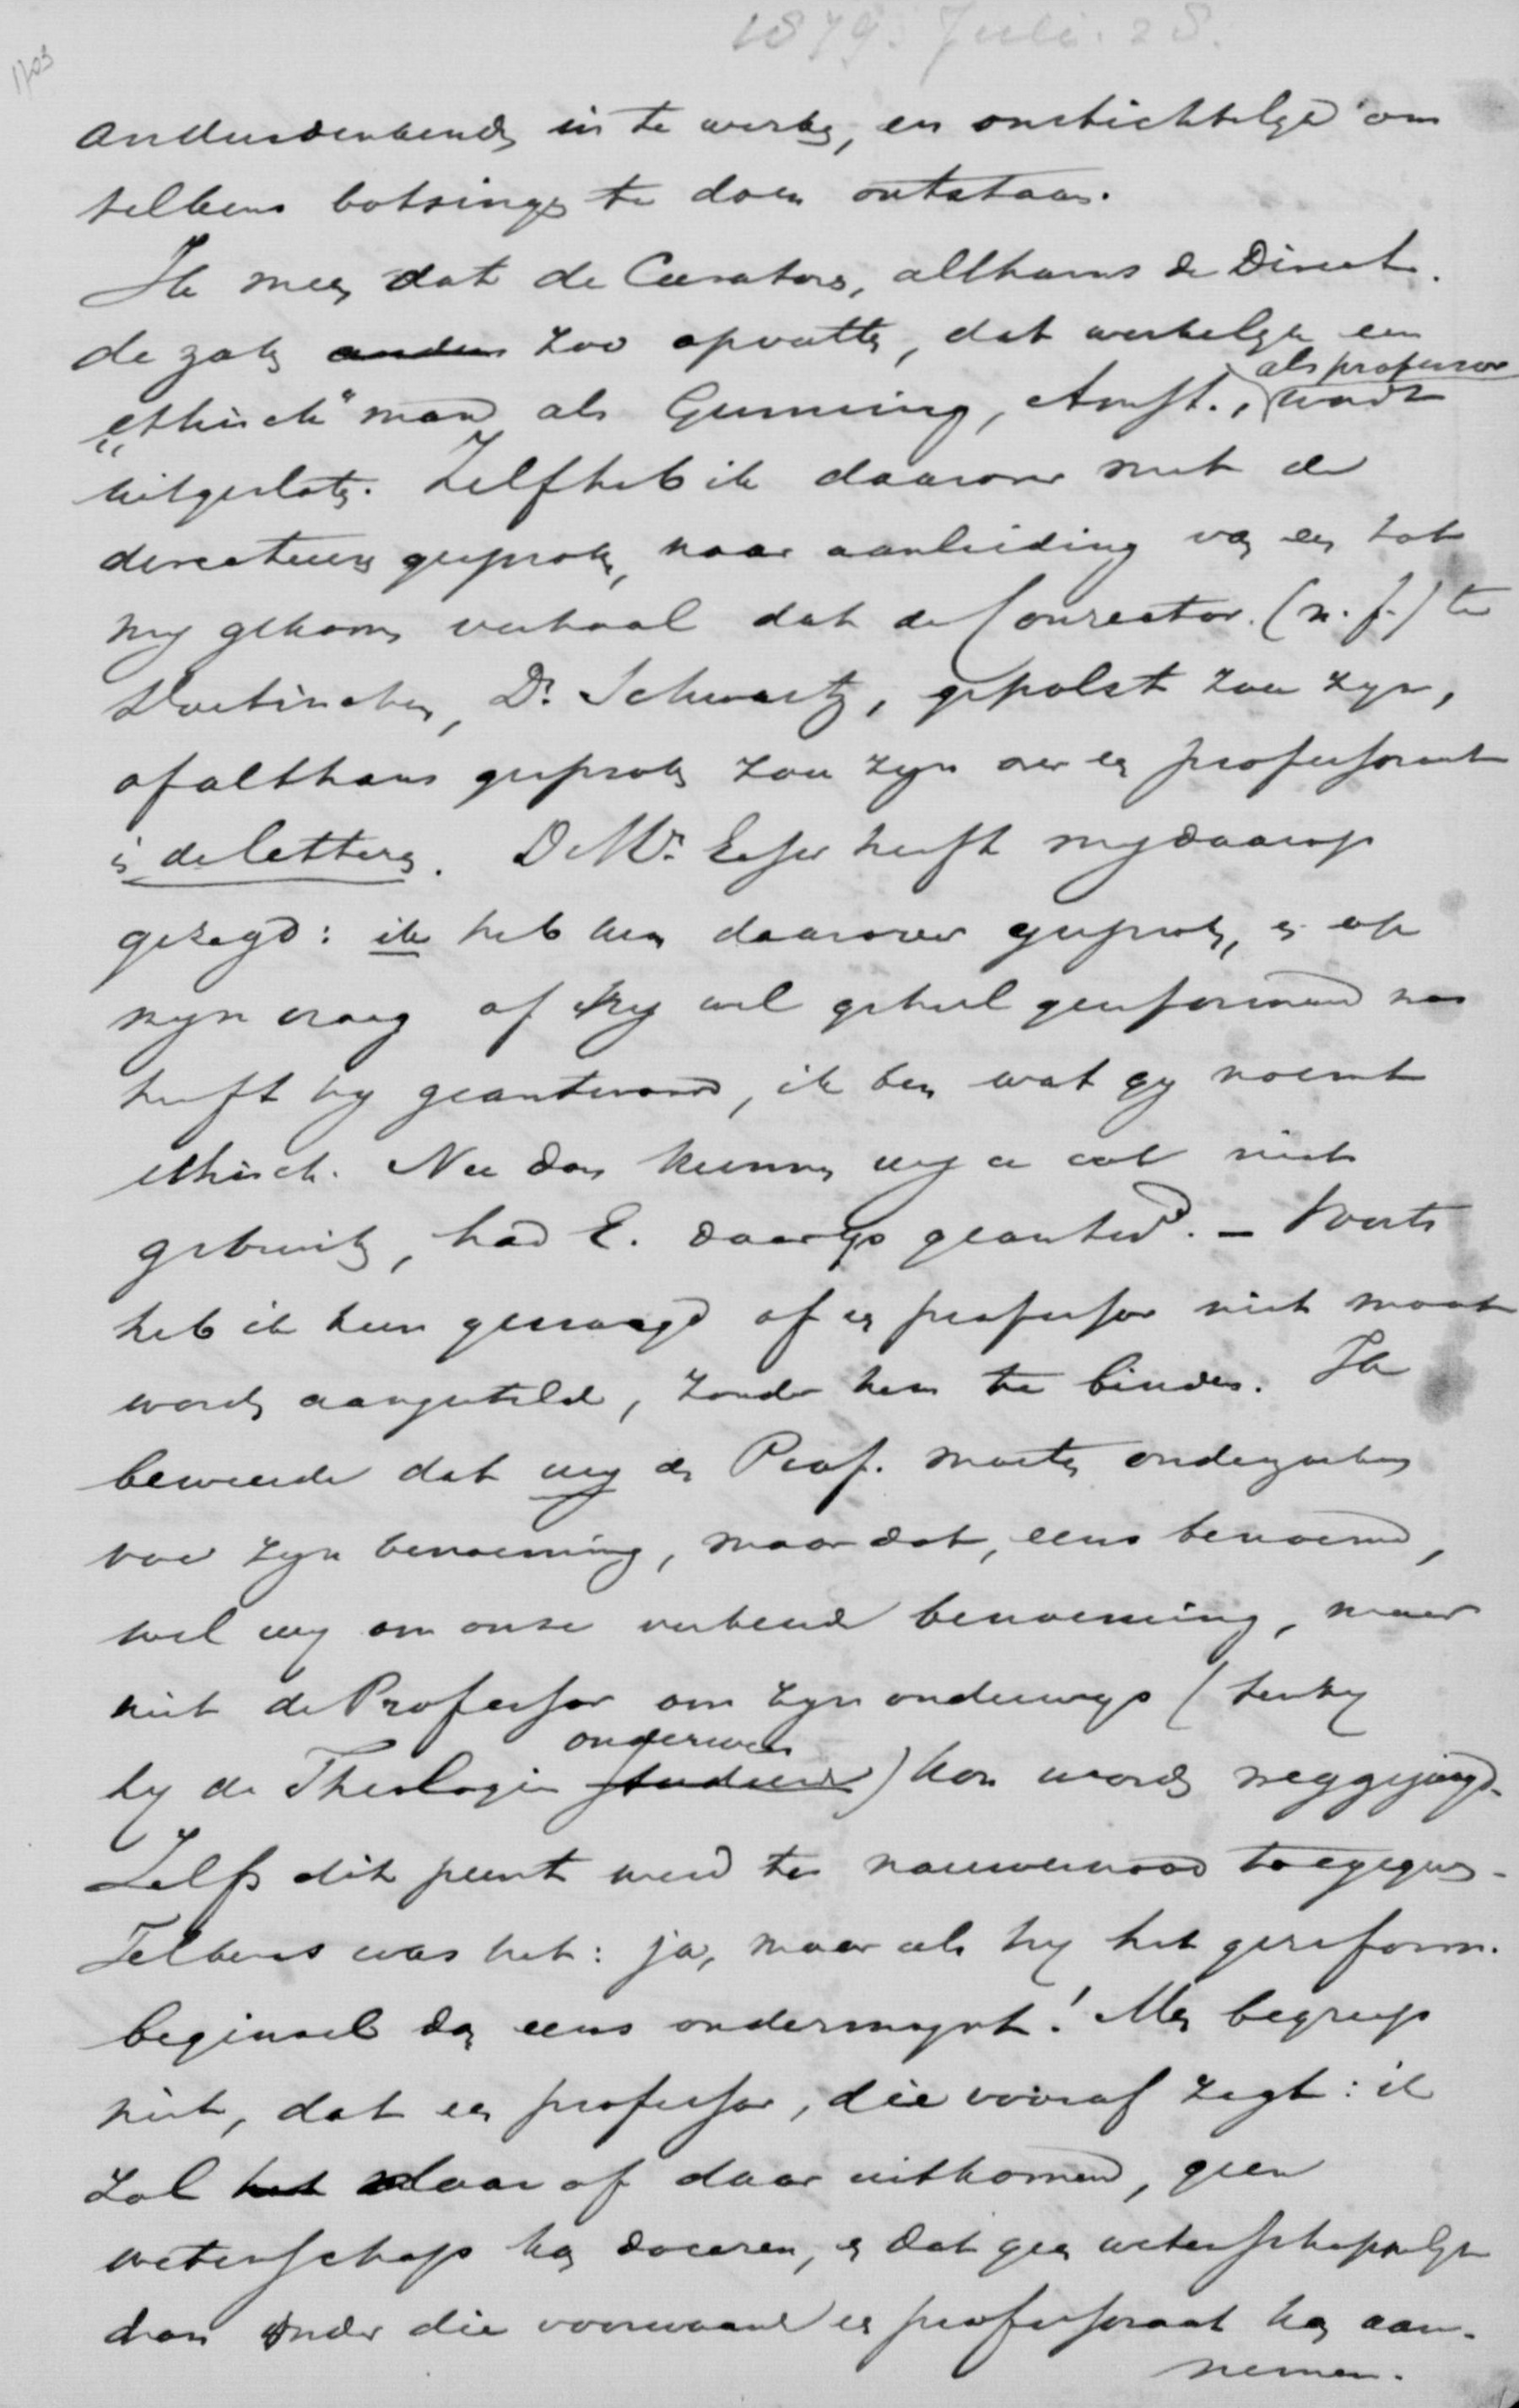 1879. Juli. 28.
1703
andersdenkenden in te werken, en onstichtelijk om
telkens botsingen te doen ontstaan.
Ik meen dat de Curatore, althans de Direct.
de zaken anders zoo opvatten, dat werkelijk een
als professor
"ethisch" man als Gunning, Amst., wordt
uitgesloten. Zelf heb ik daarover met de
directeuren gesproken, naar aanleiding van een tot
my gekomen verhaal dat de Conrector (n.f.) te
Doetinchem, Dr. Schwartz, gepolst zou zyn,
of althans gesproken zou zyn over een professoraat
in de letteren. De Mr. Esser heeft my daarop
gezegd: ik heb hem daarover gesproken, en op
myn vraag of hy wel geheel gereformeerd was
heeft hy geantwoord, ik ben wat gy noemt
ethisch. Nu dan kunnen wy u ook niet
gebruiken, had E. daarop geantwd. – Voorts
heb ik hun gevraagd of een professor niet moest
worden aangesteld, zonder hem te binden. Ik
beweerde dat wy den Prof. moeten onderzoeken
voor zyn benoeming, maar dat, eens benoemd,
wel wy om onze verkeerde benoeming, maar
niet de Professor om zyn onderwys (tenzy
onderwees
hy de Theologie studeerde) kon worden weggejaagd.
Zelfs dit punt werd ter nauwernood toegegeven.
Telkens was het: ja, maar als hy het gereform.
beginsel dan eens ondermynt! Men begreep
niet, dat een professor, die vooraf zegt: ik
zal het daar of daar uitkomen, geen
wetenschap kan doceren, en dat geen wetenschappelyk
man onder die voorwaarde een professoraat kan aan-
nemen.